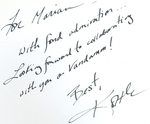 For Marian
With fond admiration...
Looking forward to collaborating
with you on Vandamm!
Best,